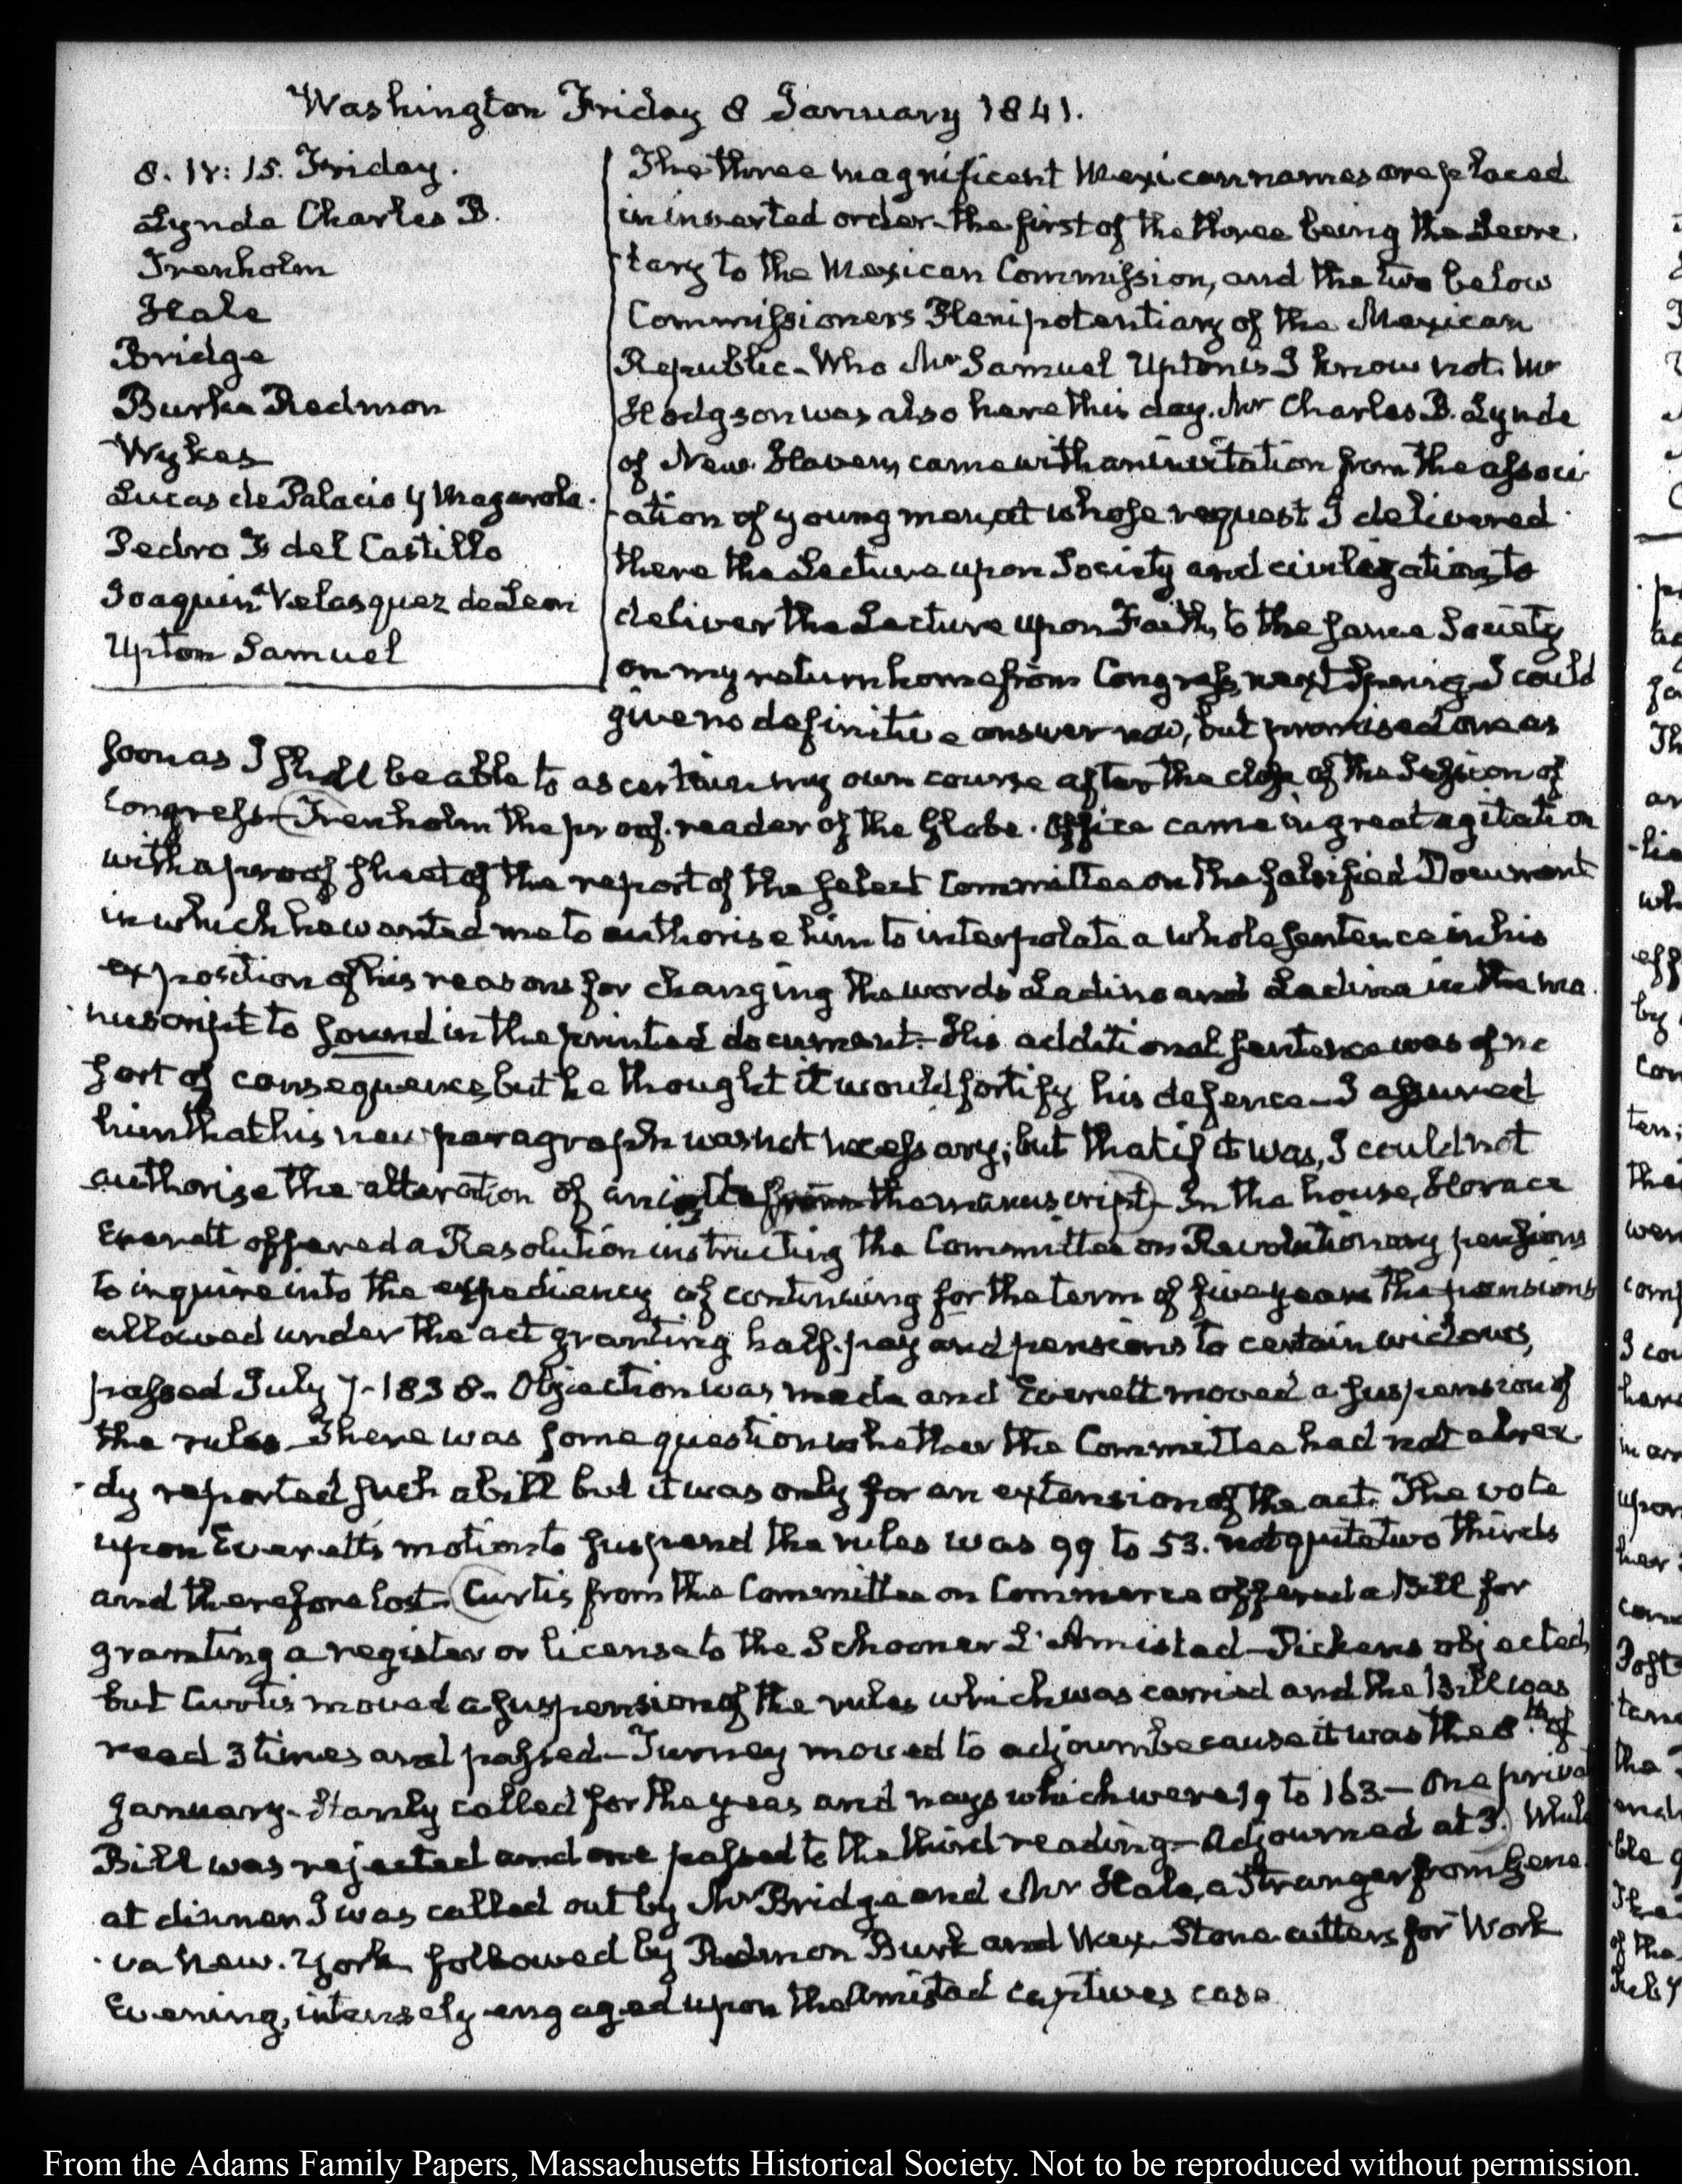 Washington Friday 8 January 1841.
8. IV: 15. Friday.
Lynde Charles B.
Trenholm
Hale
Bridge
Burke Redmon
Wykes
Lucas de Palacio y Magarola.
Pedro F. del Castillo
Joaquin Velasquez de Leon
Upton Samuel
The three magnificent Mexican names are placed
in inverted order - the first of the three being the Secre
tary to the Mexican Commission, and the two below
Commissioners Plenipotentiary of the Mexican
Republic - Who Mr Samuel Upton is I know not. Mr
Hodgson was also here this day. Mr Charles B. Lynde
of New-Haven, came with an invitation from the associ
ation of young men, at whose request I delivered
there the Lecture upon Society and civilization, to
deliver the Lecture upon Faith, to the same Society
on my return home from Congress, next Spring. I could
give no definitive answer now, but promised one as
soon as I shall be able to ascertain my own course after the close of the Session of
Congress - Trenholm the proof-reader of the Globe-Office came in great agitation
with a proof sheet of the report of the select Committee on the falsified Document
in which he wanted me to authorise him to interpolate a whole sentence in his
exposition of his reasons for changing the words Ladino and Ladina in the ma
nuscript to sound in the printed document. His additional sentence was of no
sort of consequence, but he thought it would fortify his defence - I assured
him that his new paragraph was not necessary; but that if it was, I could not
authorise the alteration of an iota from the manuscript - In the house, Horace
Everett offered a Resolution instructing the Committee on Revolutionary pensions
to inquire into the expediency of continuing for the term of five years the pensions
allowed under the act granting half-pay and pensions to certain widows,
passed July 7 - 1838 - Objection was made and Everett moved a suspension of
the rules - There was some question whether the Committee had not alrea
dy reported such a bill but it was only for an extension of the act. The vote
upon Everett's motion to suspend the rules was 99 to 53. not quite two thirds
and therefore lost - Curtis from the Committee on Commerce offered a Bill for
granting a register or license to the Schooner L'Amistad - Pickens objected
but Curtis moved a suspension of the rules which was carried and the Bill was
read 3 times and passed - Turney moved to adjourn because it was the 8th of
January - Stanly called for the yeas and nays which were 19 to 163 - One privat
Bill was rejected and one passed to the third reading - Adjourned at 3. While
at dinner I was called out by Mr Bridge and Mr Hale, a Stranger from Gene
va New-York followed by Redmon Burk and Stone-cutters for Work
Evening, intensely engaged upon the Amistad captives case
From the Adams Family Papers, Massachusetts Historical Society. Not to be reproduced without permission.